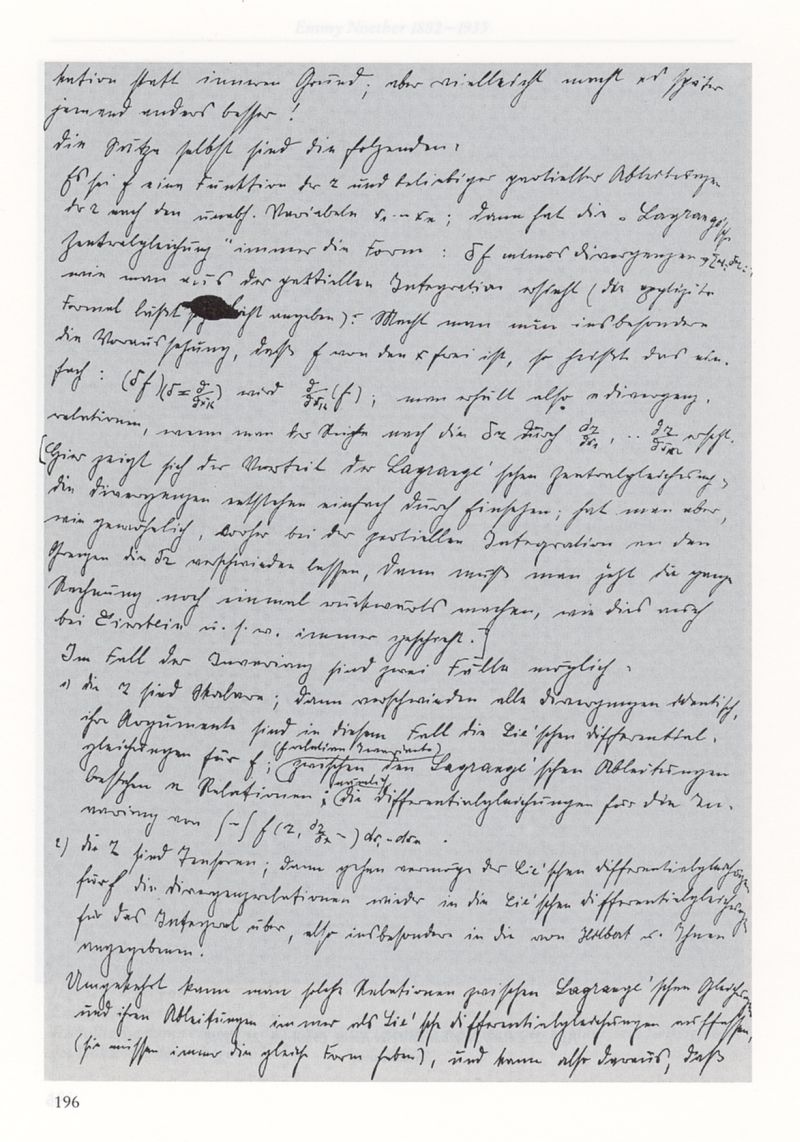 Emmy Noether 1882–1935
kation statt inneren Grund; aber vielleicht macht es später
jemand anders besser!
Die Sätze selbst sind die folgenden:
Es sei f eine Funktion der z und beliebiger partieller Ableitungen
der z nach den unabh. Variabeln x₁ … xₙ; dann hat die „Lagrangesche
Zentralgleichung" immer die Form: δf minus Divergenzen =
wie man aus der partiellen Integration ersieht (die explizite
Formel läßt angeben): Macht man nun insbesondere
die Voraussetzung, daß f von den x frei ist, so heißt das ein-
fach: (δf)(δ = d/dxₖ) wird d/dxₖ(f); man erhält also n Divergenz-
relationen, wenn man der Reihe nach die δz durch dz/dx₁, .. dz/dxₙ ersetzt.
[Hier zeigt sich der Vorteil der Lagrange'schen Zentralgleichung;
die Divergenzen entstehen einfach durch Einsetzen; hat man aber,
wie gewöhnlich, vorher bei der partiellen Integration an den
Grenzen die δz verschwinden lassen, dann muß man jetzt die ganze
Rechnung noch einmal rückwärts machen, wie dies auch
bei Einstein u. s. w. immer geschieht.]
Im Fall der Invarianz sind zwei Fälle möglich:
1) die z sind Skalare; dann verschwinden alle Divergenzen identisch,
ihre Argumente sind in diesem Fall die Lie'schen Differential-
gleichungen für f; (f relative Invariante) zwischen den Lagrange'schen Ableitungen
bestehen n Relationen; nämlich die Differentialgleichungen für die In-
varianz von ∫–∫ f(z, dz/dx –) dx₁–dxₙ.
2) die z sind Tensoren; dann gehen vermöge der Lie'schen Differentialgleichungen
für f die Divergenzrelationen wieder in die Lie'schen Differentialgleichungen
für das Integral über, also insbesondere in die von Hilbert u. Ihnen
angegebenen.
Umgekehrt kann man solche Relationen zwischen Lagrange'schen Gleichungen
und ihren Ableitungen immer als Lie'sche Differentialgleichungen auffassen,
(sie müssen immer die gleiche Form haben), und kann also daraus, daß
196